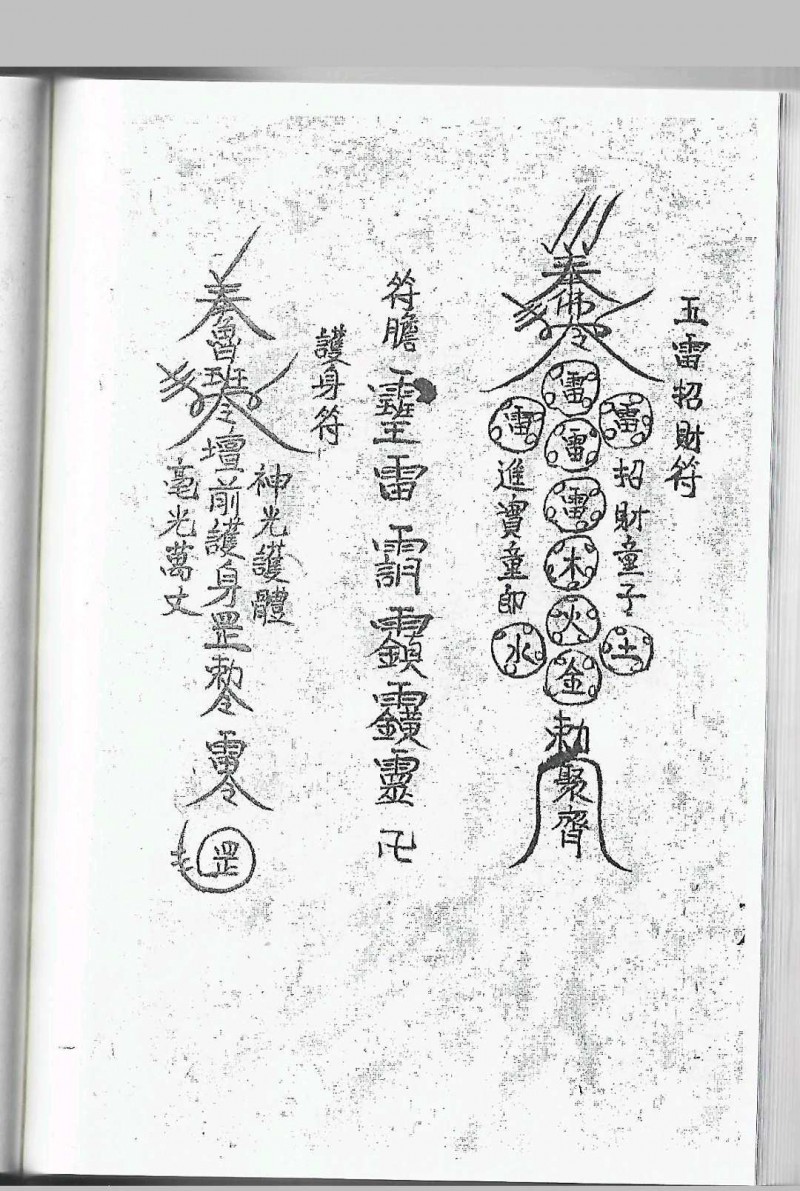 五雷招財符
奉佛令
雷雷雷雷雷
木火金水土
招財童子
進寶童郎
勅聚齊
符膽
雷
靈卍
護身符
奉魯班令壇前護身罡勅令雷令
神光護體
毫光萬丈
罡